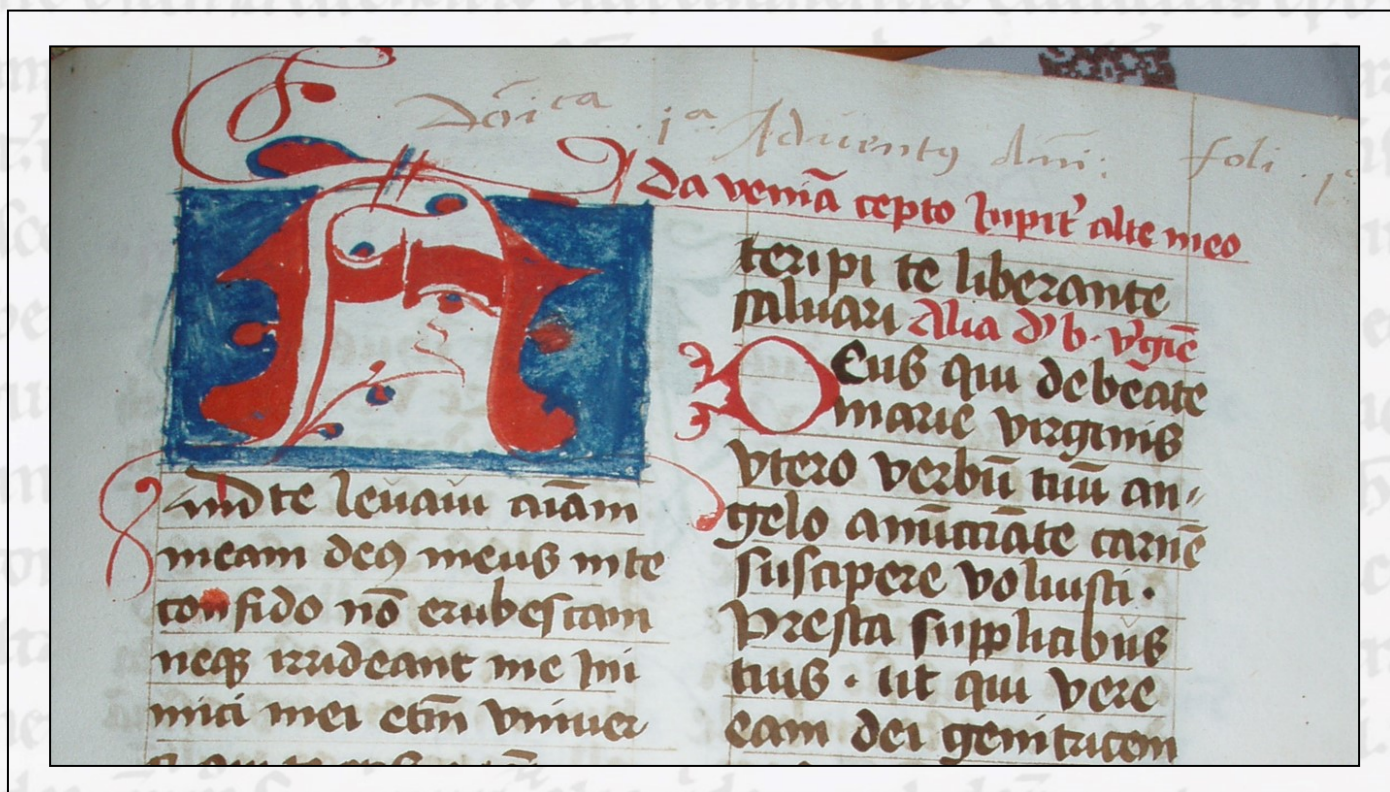 Dõica 1ª Aduentꝰ dm̃i: foli 1º
Da veniã cepto
alte meo
A
ad te leuaui aiãm
meam deꝰ meus in te
confido nõ erubescam
neqꝫ irrideant me ini
mici mei etm̃ vniuer
teripi te liberante
saluari Alia d' b. v'gie
Deus qui de beate
marie virginis
vtero verbũ tuũ an-
gelo anũciãte carnẽ
suscipere voluisti .
Presta supplicibus
tuis . ut qui vere
eam dei genitricem